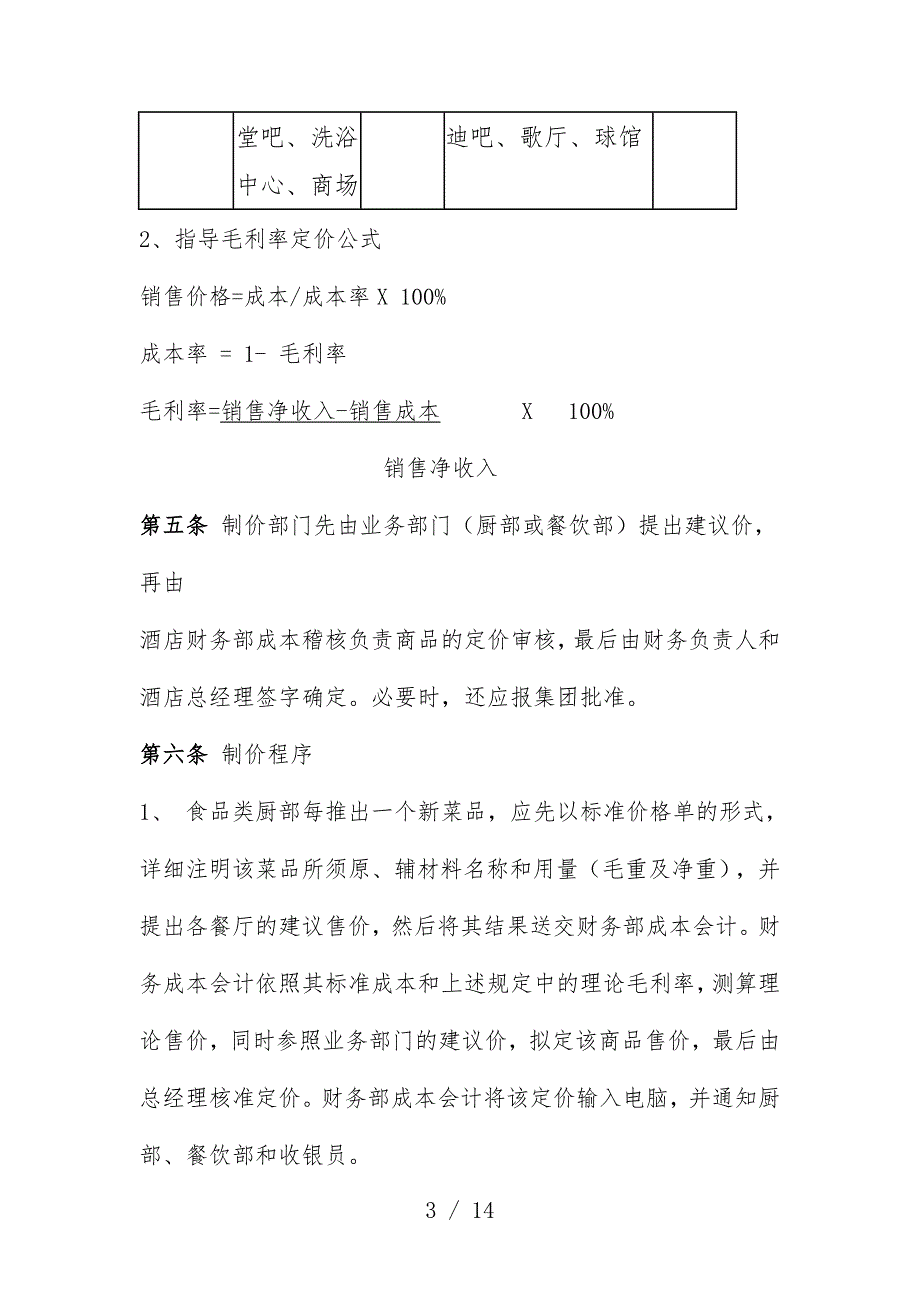 堂吧、洗浴 迪吧、歌厅、球馆
中心、商场
2、指导毛利率定价公式
销售价格=成本/成本率X 100%
成本率 = 1- 毛利率
毛利率=销售净收入-销售成本 X 100%
销售净收入
第五条 制价部门先由业务部门（厨部或餐饮部）提出建议价，
再由
酒店财务部成本稽核负责商品的定价审核，最后由财务负责人和
酒店总经理签字确定。必要时，还应报集团批准。
第六条 制价程序
1、 食品类厨部每推出一个新菜品，应先以标准价格单的形式，
详细注明该菜品所须原、辅材料名称和用量（毛重及净重），并
提出各餐厅的建议售价，然后将其结果送交财务部成本会计。财
务成本会计依照其标准成本和上述规定中的理论毛利率，测算理
论售价，同时参照业务部门的建议价，拟定该商品售价，最后由
总经理核准定价。财务部成本会计将该定价输入电脑，并通知厨
部、餐饮部和收银员。
3 / 14